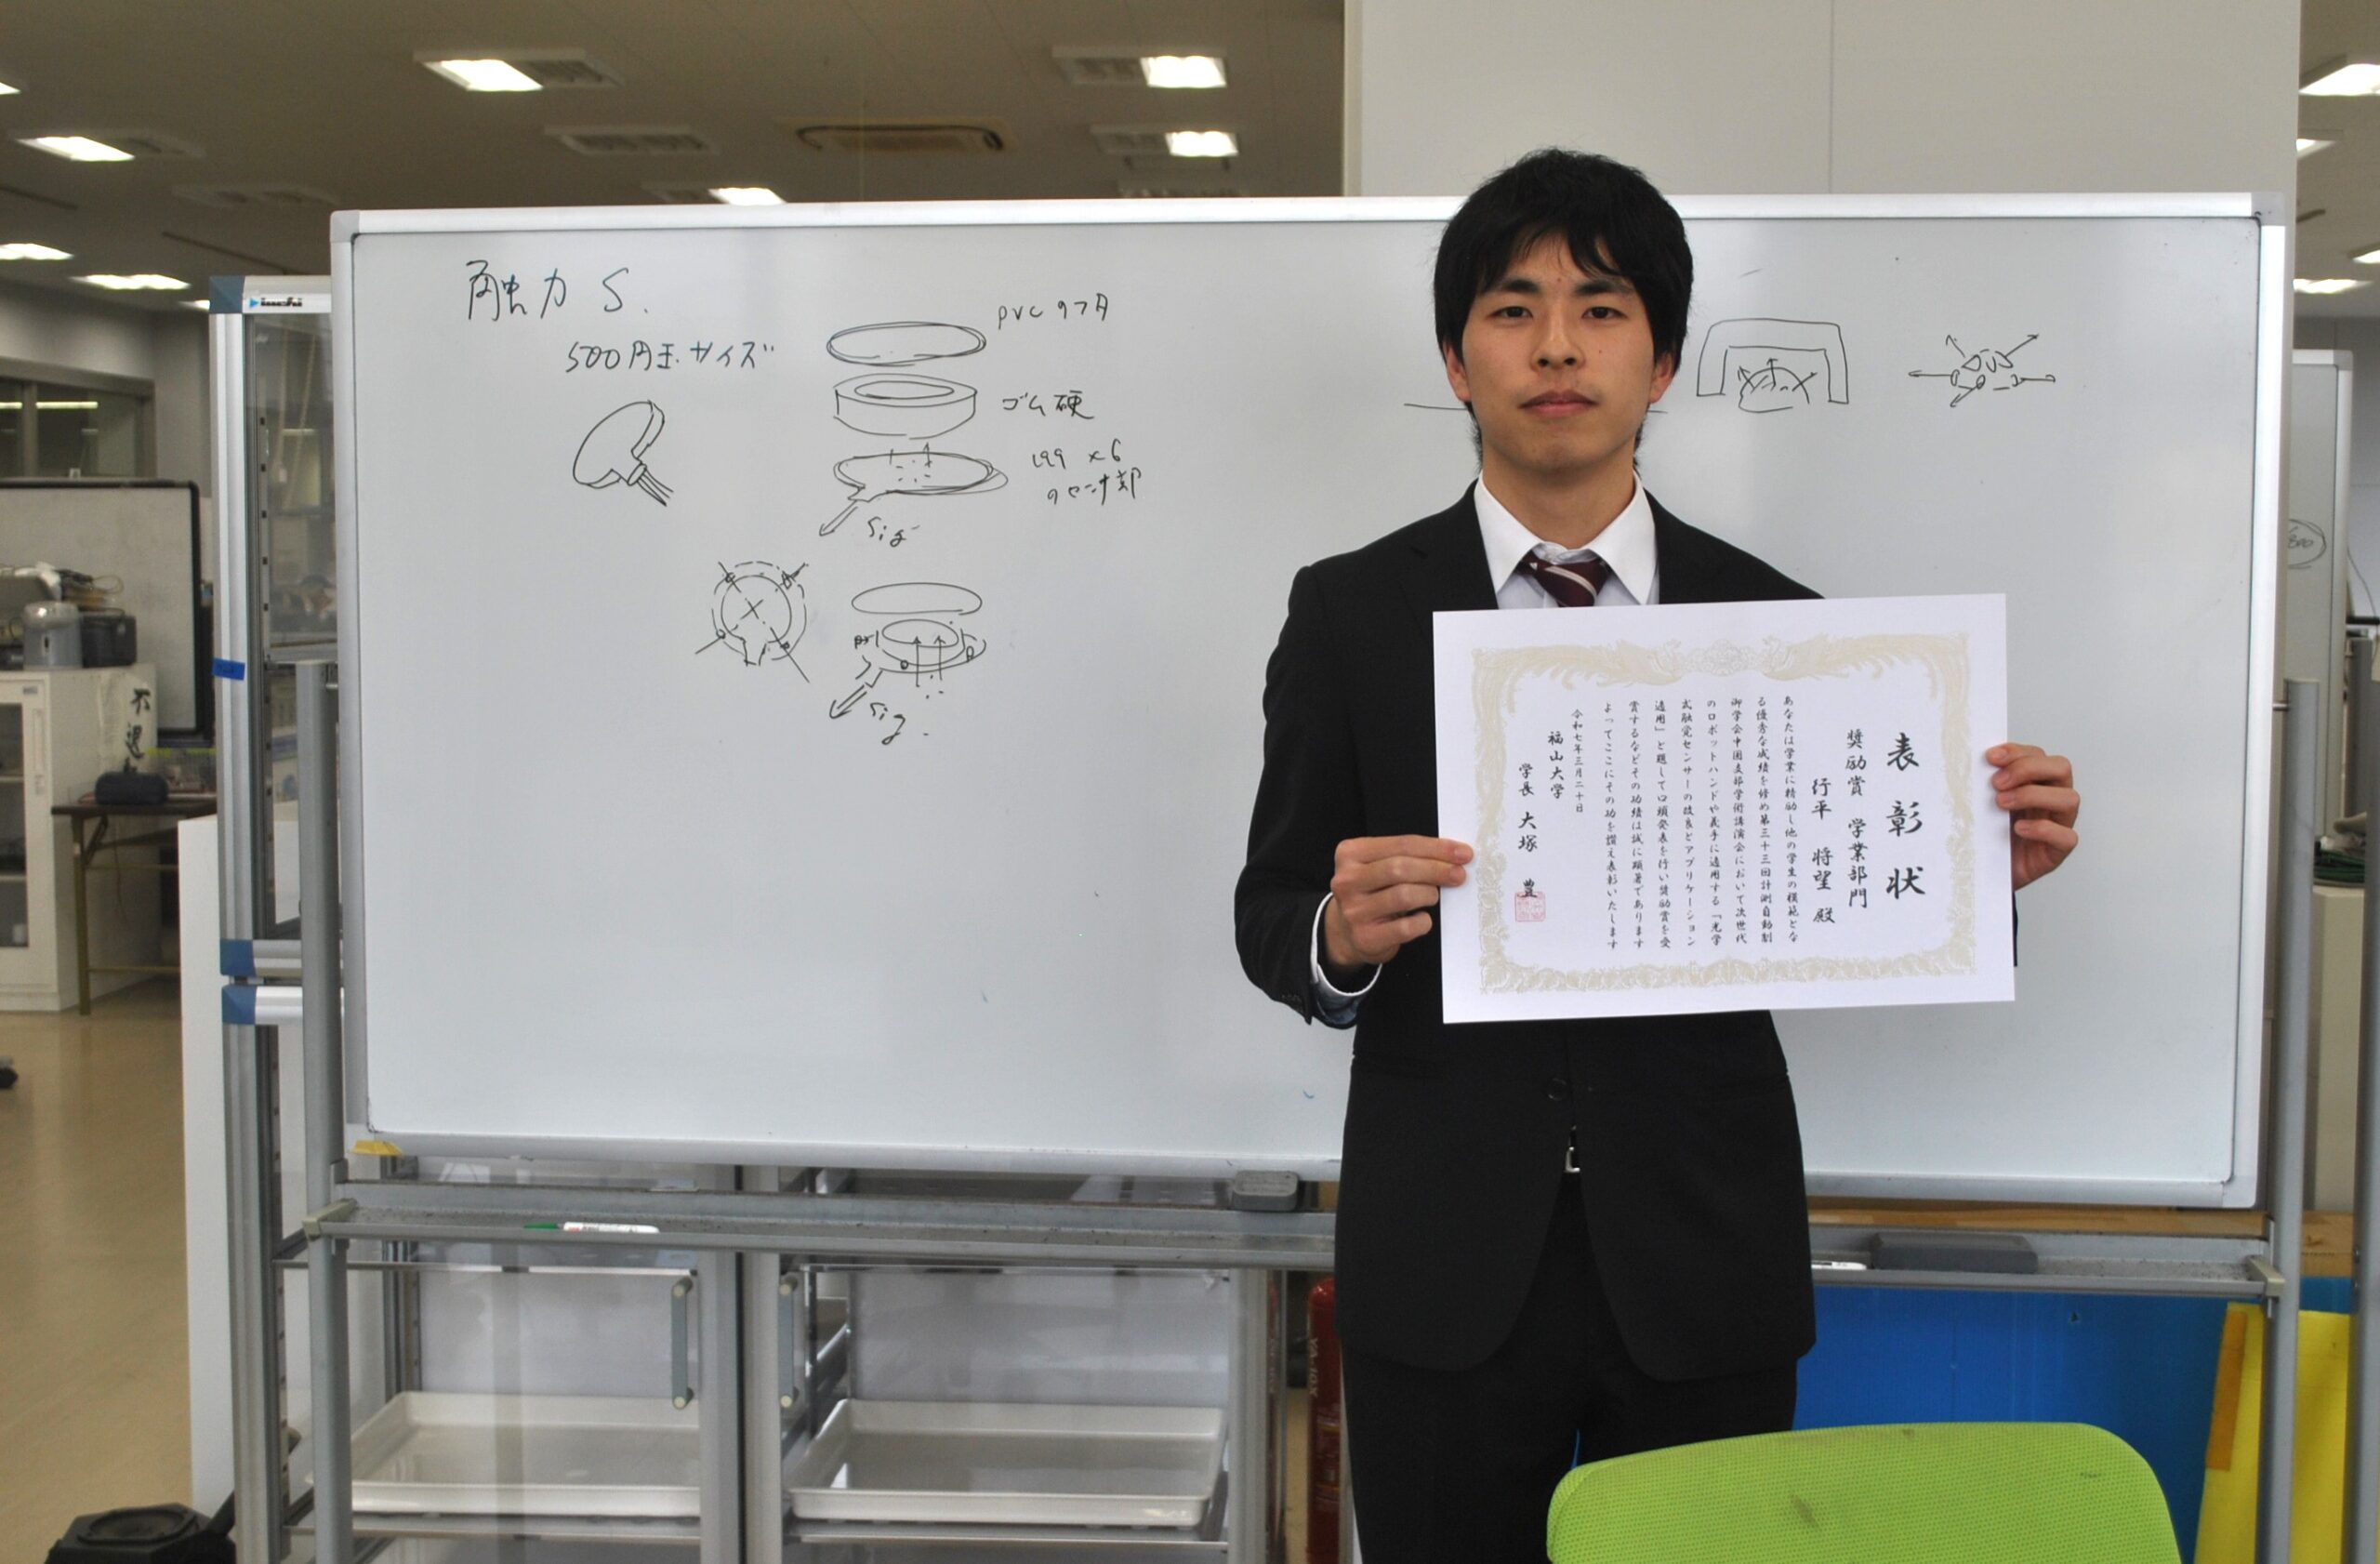 触力 S.
500円玉サイズ
PVCのフタ
ゴム硬
×6
のセンサ部
Sig
Sig.
不退
表彰状
奨励賞 学業部門
行平 将望 殿
あなたは学業に精励し他の学生の模範とな
る優秀な成績を修め第三十三回計測自動制
御学会中国支部学術講演会において次世代
のロボットハンドや義手に適用する「光学
式触覚センサーの改良とアプリケーション
適用」と題して口頭発表を行い奨励賞を受
賞するなどその功績は誠に顕著であります
よってここにその功を讃え表彰いたします
令和七年三月二十日
福山大学
学長 大塚 豊
YA-10X